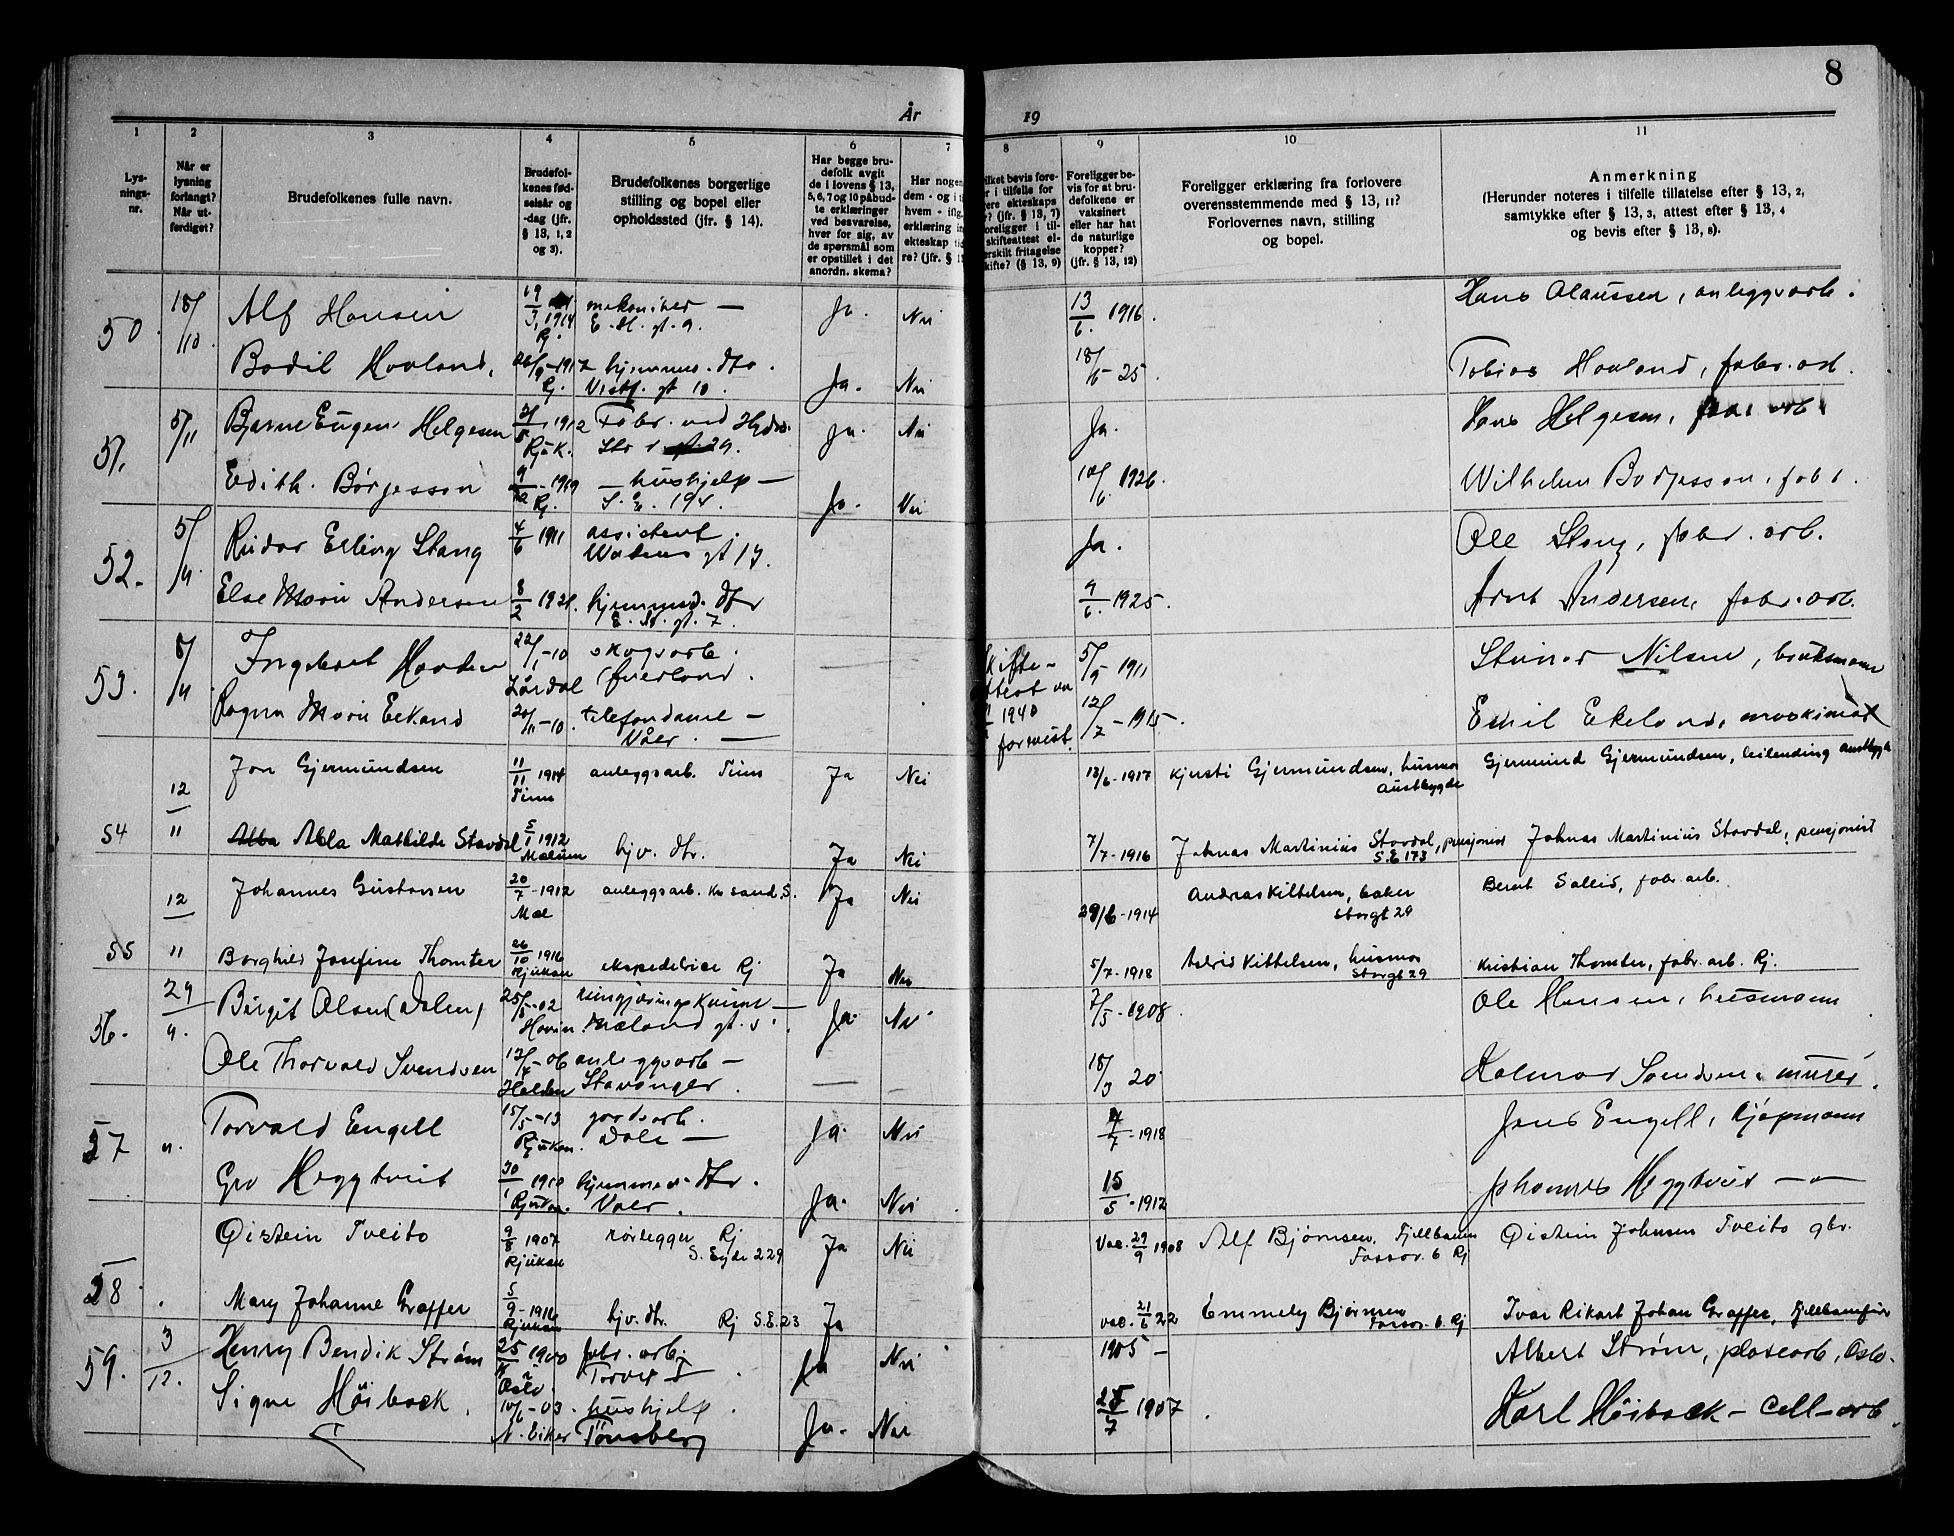 8
År 19
1 2 3 4 5 6 7 8 9 10 11
Lys-
nings-
nr.
Når er
lysning
forlangt?
Når ut-
ferdiget?
Brudefolkenes fulle navn.
Brudefol-
kenes fød-
selsår og
-dag (jfr.
§ 13, 1, 2
og 3).
Brudefolkenes borgerlige
stilling og bopel eller
opholdssted (jfr. § 14).
Har begge bru-
defolk avgit
de i lovens § 13,
5, 6, 7 og 10 påbud-
te erklæringer
ved besvarelse,
hver for sig, av
de spørsmål som
er opstillet i det
anordn. skema?
Har nogen
dem - og i t
hvem - iflg.
erklæring in
ekteskap tid
re? (jfr. § 1
ilket bevis fore-
r i tilfelle for
ere ekteskaps
? (jfr. § 13, 7)
oreligger i til-
skifteattest el-
erskilt fritagelse
kifte? (§ 13, 9)
Foreligger be-
vis for at bru-
defolkene er
vaksinert
eller har hat
de naturlige
kopper?
(jfr. § 13, 12)
Foreligger erklæring fra forlovere
overensstemmende med § 13, 11?
Forlovernes navn, stilling
og bopel.
Anmerkning
(Herunder noteres i tilfelle tillatelse efter § 13, 2,
samtykke efter § 13, 3, attest efter § 13, 4
og bevis efter § 13, 8).
50. 18/10 Alf Hansen 19/3 1914 Rj. mekaniker — E. H. gt. 9. Ja. Nei 13/6. 1916. Hans Olaussen, anleggsarb.
Bodil Hovland, 26/9-1917 Rj. hjemmev. dtr. Vestf. gt 10. Ja. Nei 18/6-25. Tobias Hovland, fabr. arb.
51. 5/11 Bjarne Eugen Helgesen 1912 Rjuk. Fabr. ved Hydro. 29. Ja. Nei Ja. Hans Helgesen, arb
Edith. Børjesson 9/12-1919 Rj. — hushjelp — S. E. 194. Ja. Nei 10/6. 1926. Wilhelm Borjesson, fab
52. 5/11. Reidar Erling Stang 4/6 1911 assistent. gt 17. Ja. Ole Stang, fabr. arb.
Else Marie Andersen 8/2 1921. hjemmev. dtr E. H. gt. 7. 9/6. 1925. Arnt Andersen, fabr. arb.
53. 8/11 Ingebret Hovden 22/1-10 Lårdal skogsarb. Øverland. Skifte- 5/9 1911 Steinar Nilsen, bruksmann
Ragna Marie Eekand 20/11-10. telefondame — Våer. — 1940 forevist. 12/7-1915. Emil Ekeland, maskinist
54 12/11 Jon Gjermundsen 11/11 1914 Tinn anleggsarb. Tinn Ja Nei 13/6-1917 Kjersti Gjermundsen, husmor Austbygde Gjermund Gjermundsen, leilending Austbygde
Abla Mathilde Stavdal 5/1 1912 Mælum hjv. dtr. Ja Nei 7/7-1916 Johnas Martinius Stavdal, pensjonist S.E 173 Johnas Martinius Stavdal, pensjonist
55 12/11 Johannes Gustavsen 20/7-1912 Mæl anleggsarb. Kr.sand. S. Ja Nei 29/6-1914 Andreas Kittelsen, baker Storgt 29 Bernt Salleid, fabr. arb.
Borghild Josefine Thomter 26/10 1916 Rjukan ekspeditrise Rj Ja Nei 5/7-1918 Astrid Kittelsen, husmor Storgt 29 Kristian Thomter, fabr. arb. Rj.
56. 29/11. Birgit Olsen (Dalen) 25/5-02 Hovin. rengjøringskvinne — Mæland gt. 5. Ja. Nei 7/5-1908. Ole Hansen, husmann
Ole Thorvald Svendsen 12/4-06 Halden anleggsarb — Stavanger. — 18/3 20 Kolmar Svendsen, murer.
57 ". Torvald Engell 15/5-13 Rjukan. jordsarb. Dale — Ja. Nei 4/7-1918 Jens Engell, kjøpmann
Gro Heggtveit 30/1 1910 Rjukan. hjemmev. dtr. Våer. Ja. Nei. 15/5-1912 Johannes Heggtveit —"—
58 Øistein Tveito 9/8 1907 Rjukan rørlegger Rj S. Eyde 229 Ja Nei Vac. 29/9 1908 Alf Bjørnsen, Fjellbaum Fossov. 6 Rj Øistein Johnsen Tveito gbr.
Mary Johanne Graffer 5/9-1916 Rjukan hjv. dtr. Rj S.E. 23 Ja vac. 21/6 22 Emmely Bjørnsen Fossov. 6. Rj Ivar Rikart Johan Graffer, fjellbanefør
59. 3/12. Henry Bendik Strøm 25/11 1900 Oslo. fabr. arb. Torvet Ja Nei 1905 — Albert Strøm, platearb, Oslo.
Signe Höibaek. 10/6-03. N. Eiker hushjelp. Tønsberg Ja. Nei 25/7 1907. Karl Höibaek — Cell-arb.